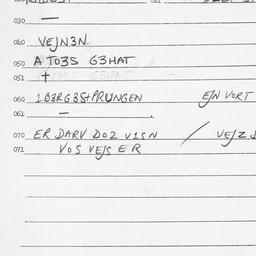 030 —
040 VEJN3N
050 A TO3S G3HAT
051 †
060 1B3RG3S+PRUNGEN EJN VORT
061 —
070 ER DARV DOZ V1SN / VEJZ
071 VOS VEJS ER